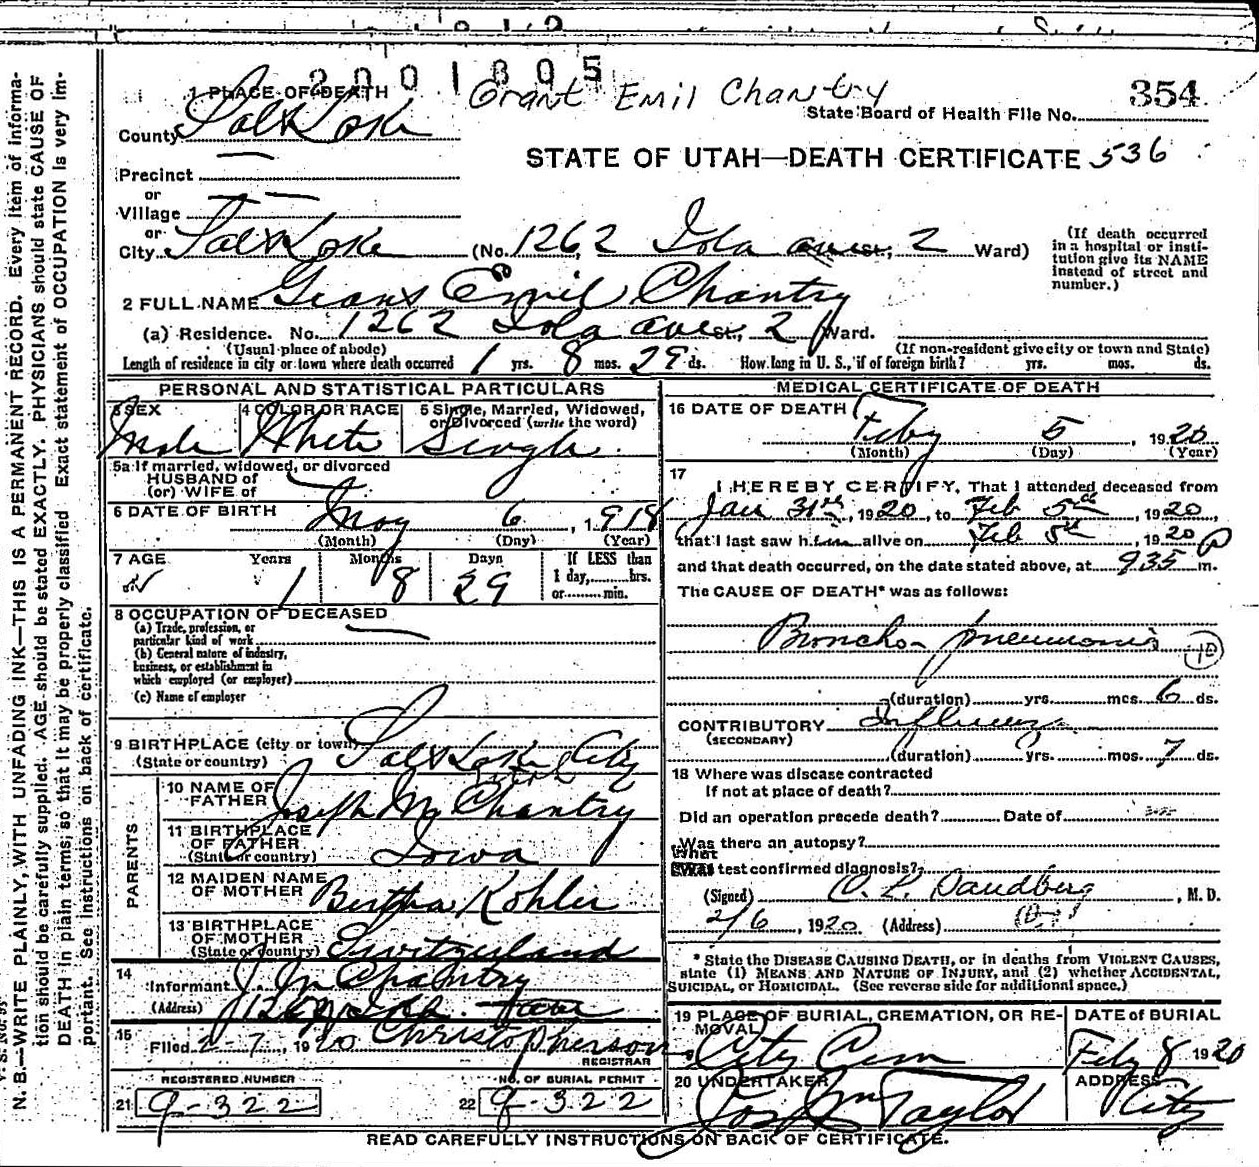 2001805
Grant Emil Chantry
354
1 PLACE OF DEATH
State Board of Health File No.
County Salt Lake
STATE OF UTAH—DEATH CERTIFICATE 536
Precinct
or
Village
or
City Salt Lake (No. 1262 Iola ave St., 2 Ward)
(If death occurred in a hospital or insti-
tution give its NAME instead of street and number.)
2 FULL NAME Grant Emil Chantry
(a) Residence. No. 1262 Iola ave St., 2 Ward.
(Usual place of abode) (If non-resident give city or town and State)
Length of residence in city or town where death occurred 1 yrs. 8 mos. 29 ds. How long in U. S., if of foreign birth? yrs. mos. ds.
PERSONAL AND STATISTICAL PARTICULARS
3 SEX Male
4 COLOR OR RACE White
5 Single, Married, Widowed, or Divorced (write the word) Single
5a If married, widowed, or divorced
HUSBAND of
(or) WIFE of
6 DATE OF BIRTH May 6, 1918
(Month) (Day) (Year)
7 AGE Years Months Days If LESS than
1 day,........hrs.
or.........min.
1 8 29
8 OCCUPATION OF DECEASED
(a) Trade, profession, or
particular kind of work
(b) General nature of industry,
business, or establishment in
which employed (or employer)
(c) Name of employer
9 BIRTHPLACE (city or town) Salt Lake City
(State or country) Utah
PARENTS
10 NAME OF FATHER Joseph M Chantry
11 BIRTHPLACE OF FATHER (State or country) Iowa
12 MAIDEN NAME OF MOTHER Bertha Kohler
13 BIRTHPLACE OF MOTHER (State or country) Switzerland
14 Informant J. M Chantry
(Address)
15 Filed 2-7, 1920 Christopherson
REGISTRAR
REGISTERED NUMBER
21 9-322
NO. OF BURIAL PERMIT
22 9-322
MEDICAL CERTIFICATE OF DEATH
16 DATE OF DEATH
Feby 5, 1920
(Month) (Day) (Year)
17
I HEREBY CERTIFY, That I attended deceased from
Jan 31st, 1920, to Feb 5th, 1920,
that I last saw him alive on Feb 5th, 1920
and that death occurred, on the date stated above, at 935 P m.
The CAUSE OF DEATH* was as follows:
Broncho-pneumonia
10
(duration) yrs. mos. 6 ds.
CONTRIBUTORY Influenza
(SECONDARY)
(duration) yrs. mos. 7 ds.
18 Where was disease contracted
If not at place of death?
Did an operation precede death? Date of
Was there an autopsy?
What test confirmed diagnosis?
(Signed) C. L. Sandberg, M. D.
2/6, 1920. (Address)
* State the DISEASE CAUSING DEATH, or in deaths from VIOLENT CAUSES,
state (1) MEANS AND NATURE OF INJURY, and (2) whether ACCIDENTAL,
SUICIDAL, or HOMICIDAL. (See reverse side for additional space.)
19 PLACE OF BURIAL, CREMATION, OR RE-
MOVAL
City Cem
DATE of BURIAL
Feby 8 1920
20 UNDERTAKER
Jos Wm Taylor
ADDRESS
City
READ CAREFULLY INSTRUCTIONS ON BACK OF CERTIFICATE.
N. B.—WRITE PLAINLY, WITH UNFADING INK—THIS IS A PERMANENT RECORD. Every item of informa-
tion should be carefully supplied. AGE should be stated EXACTLY. PHYSICIANS should state CAUSE OF
DEATH in plain terms, so that it may be properly classified. Exact statement of OCCUPATION is very im-
portant. See instructions on back of certificate.